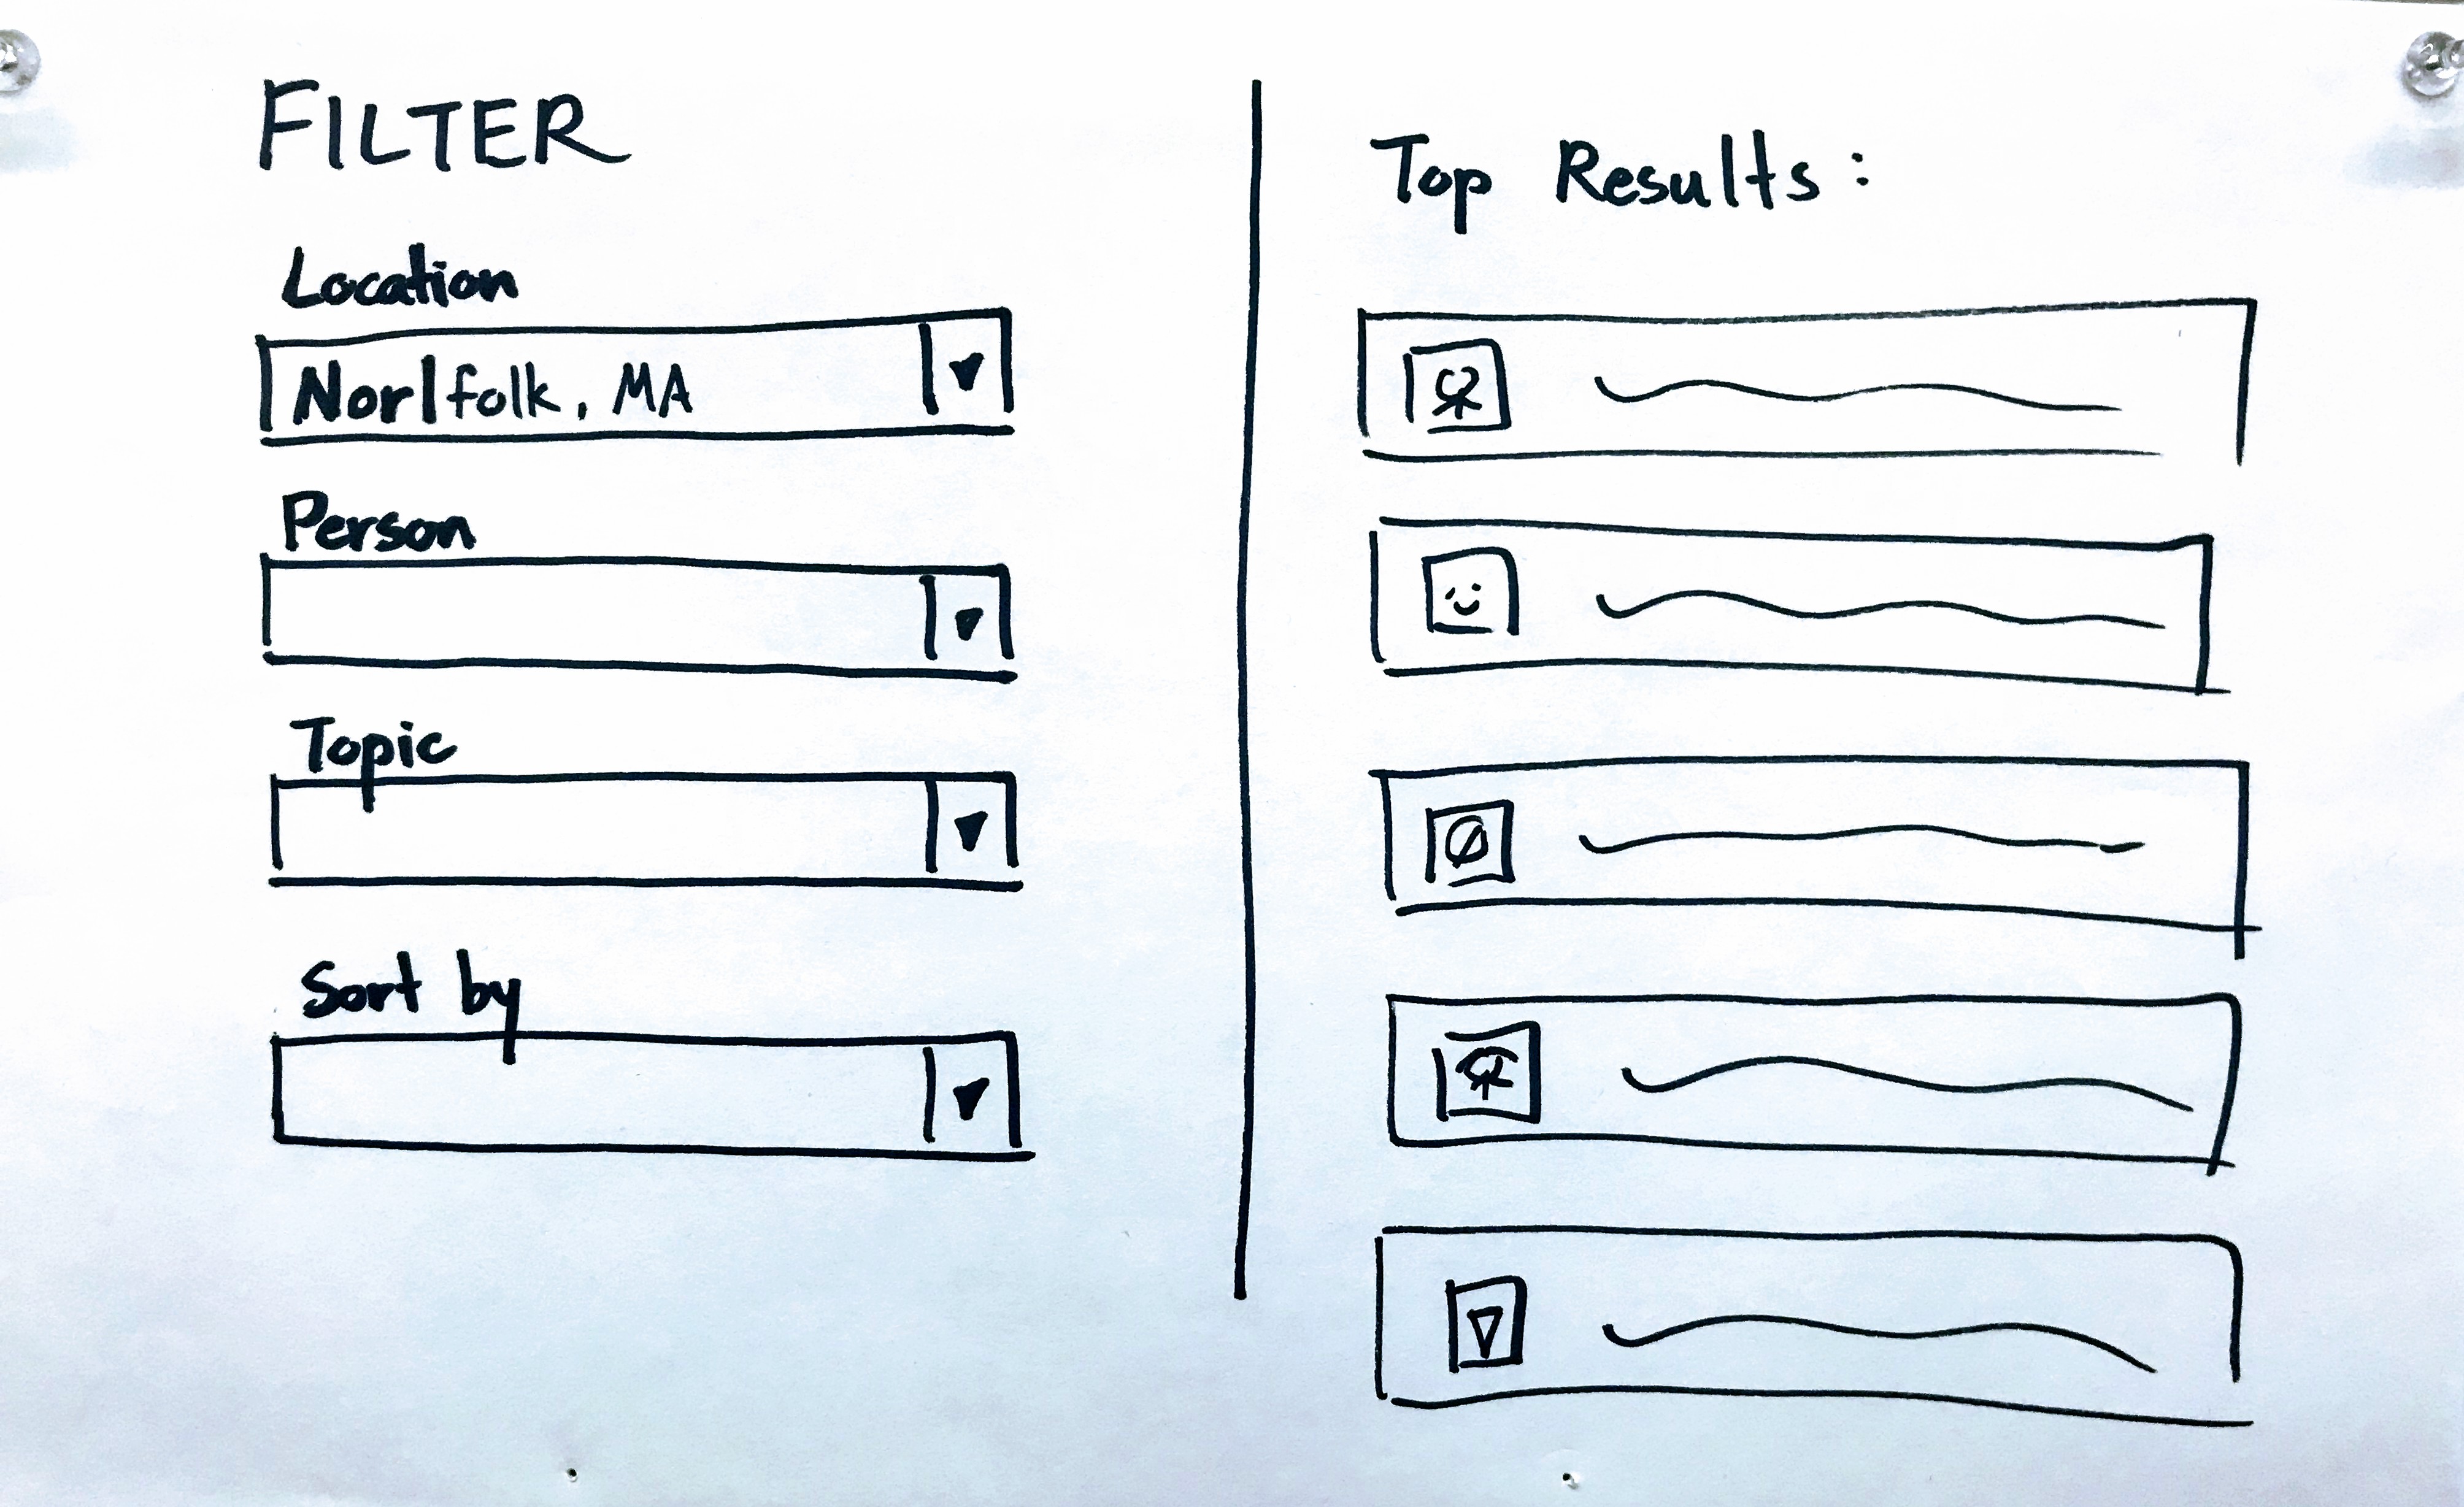 FILTER
Location
Nor|folk, MA
Person
Topic
Sort by
Top Results: